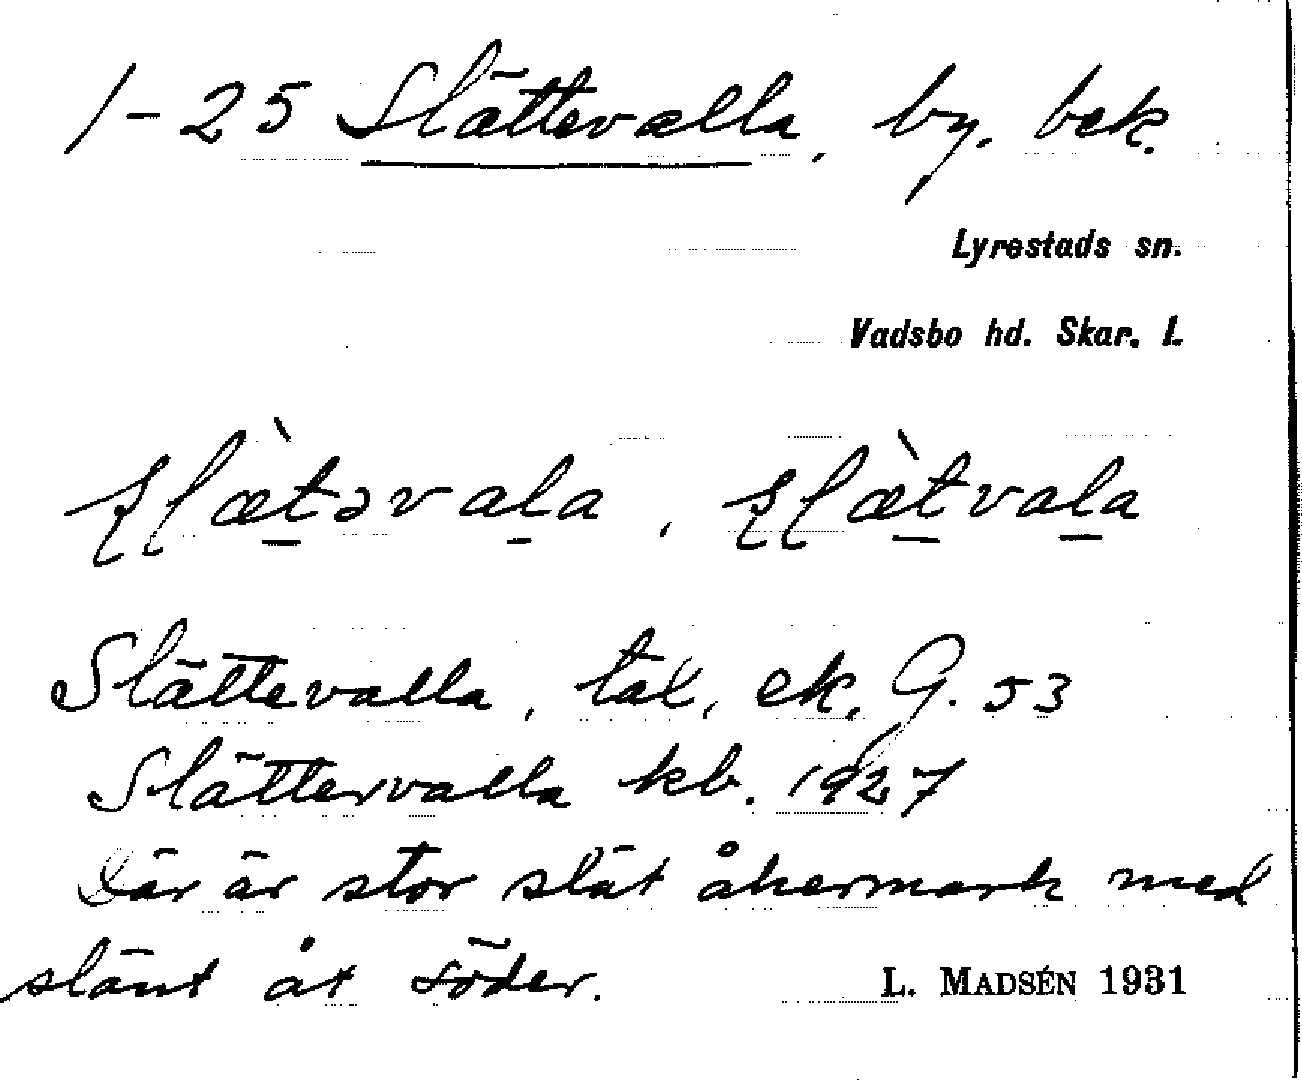 1-25 Slättevalla, by. bek.
Lyrestads sn.
Vadsbo hd. Skar. l.
ʂɭæ̀təvala, ʂɭæ̀tvala
Slättevalla, tax, ek. G. 53
Slättervalla kb. 1927
Där är stor slät åkermark med
slänt åt söder.
L. MADSÉN 1931